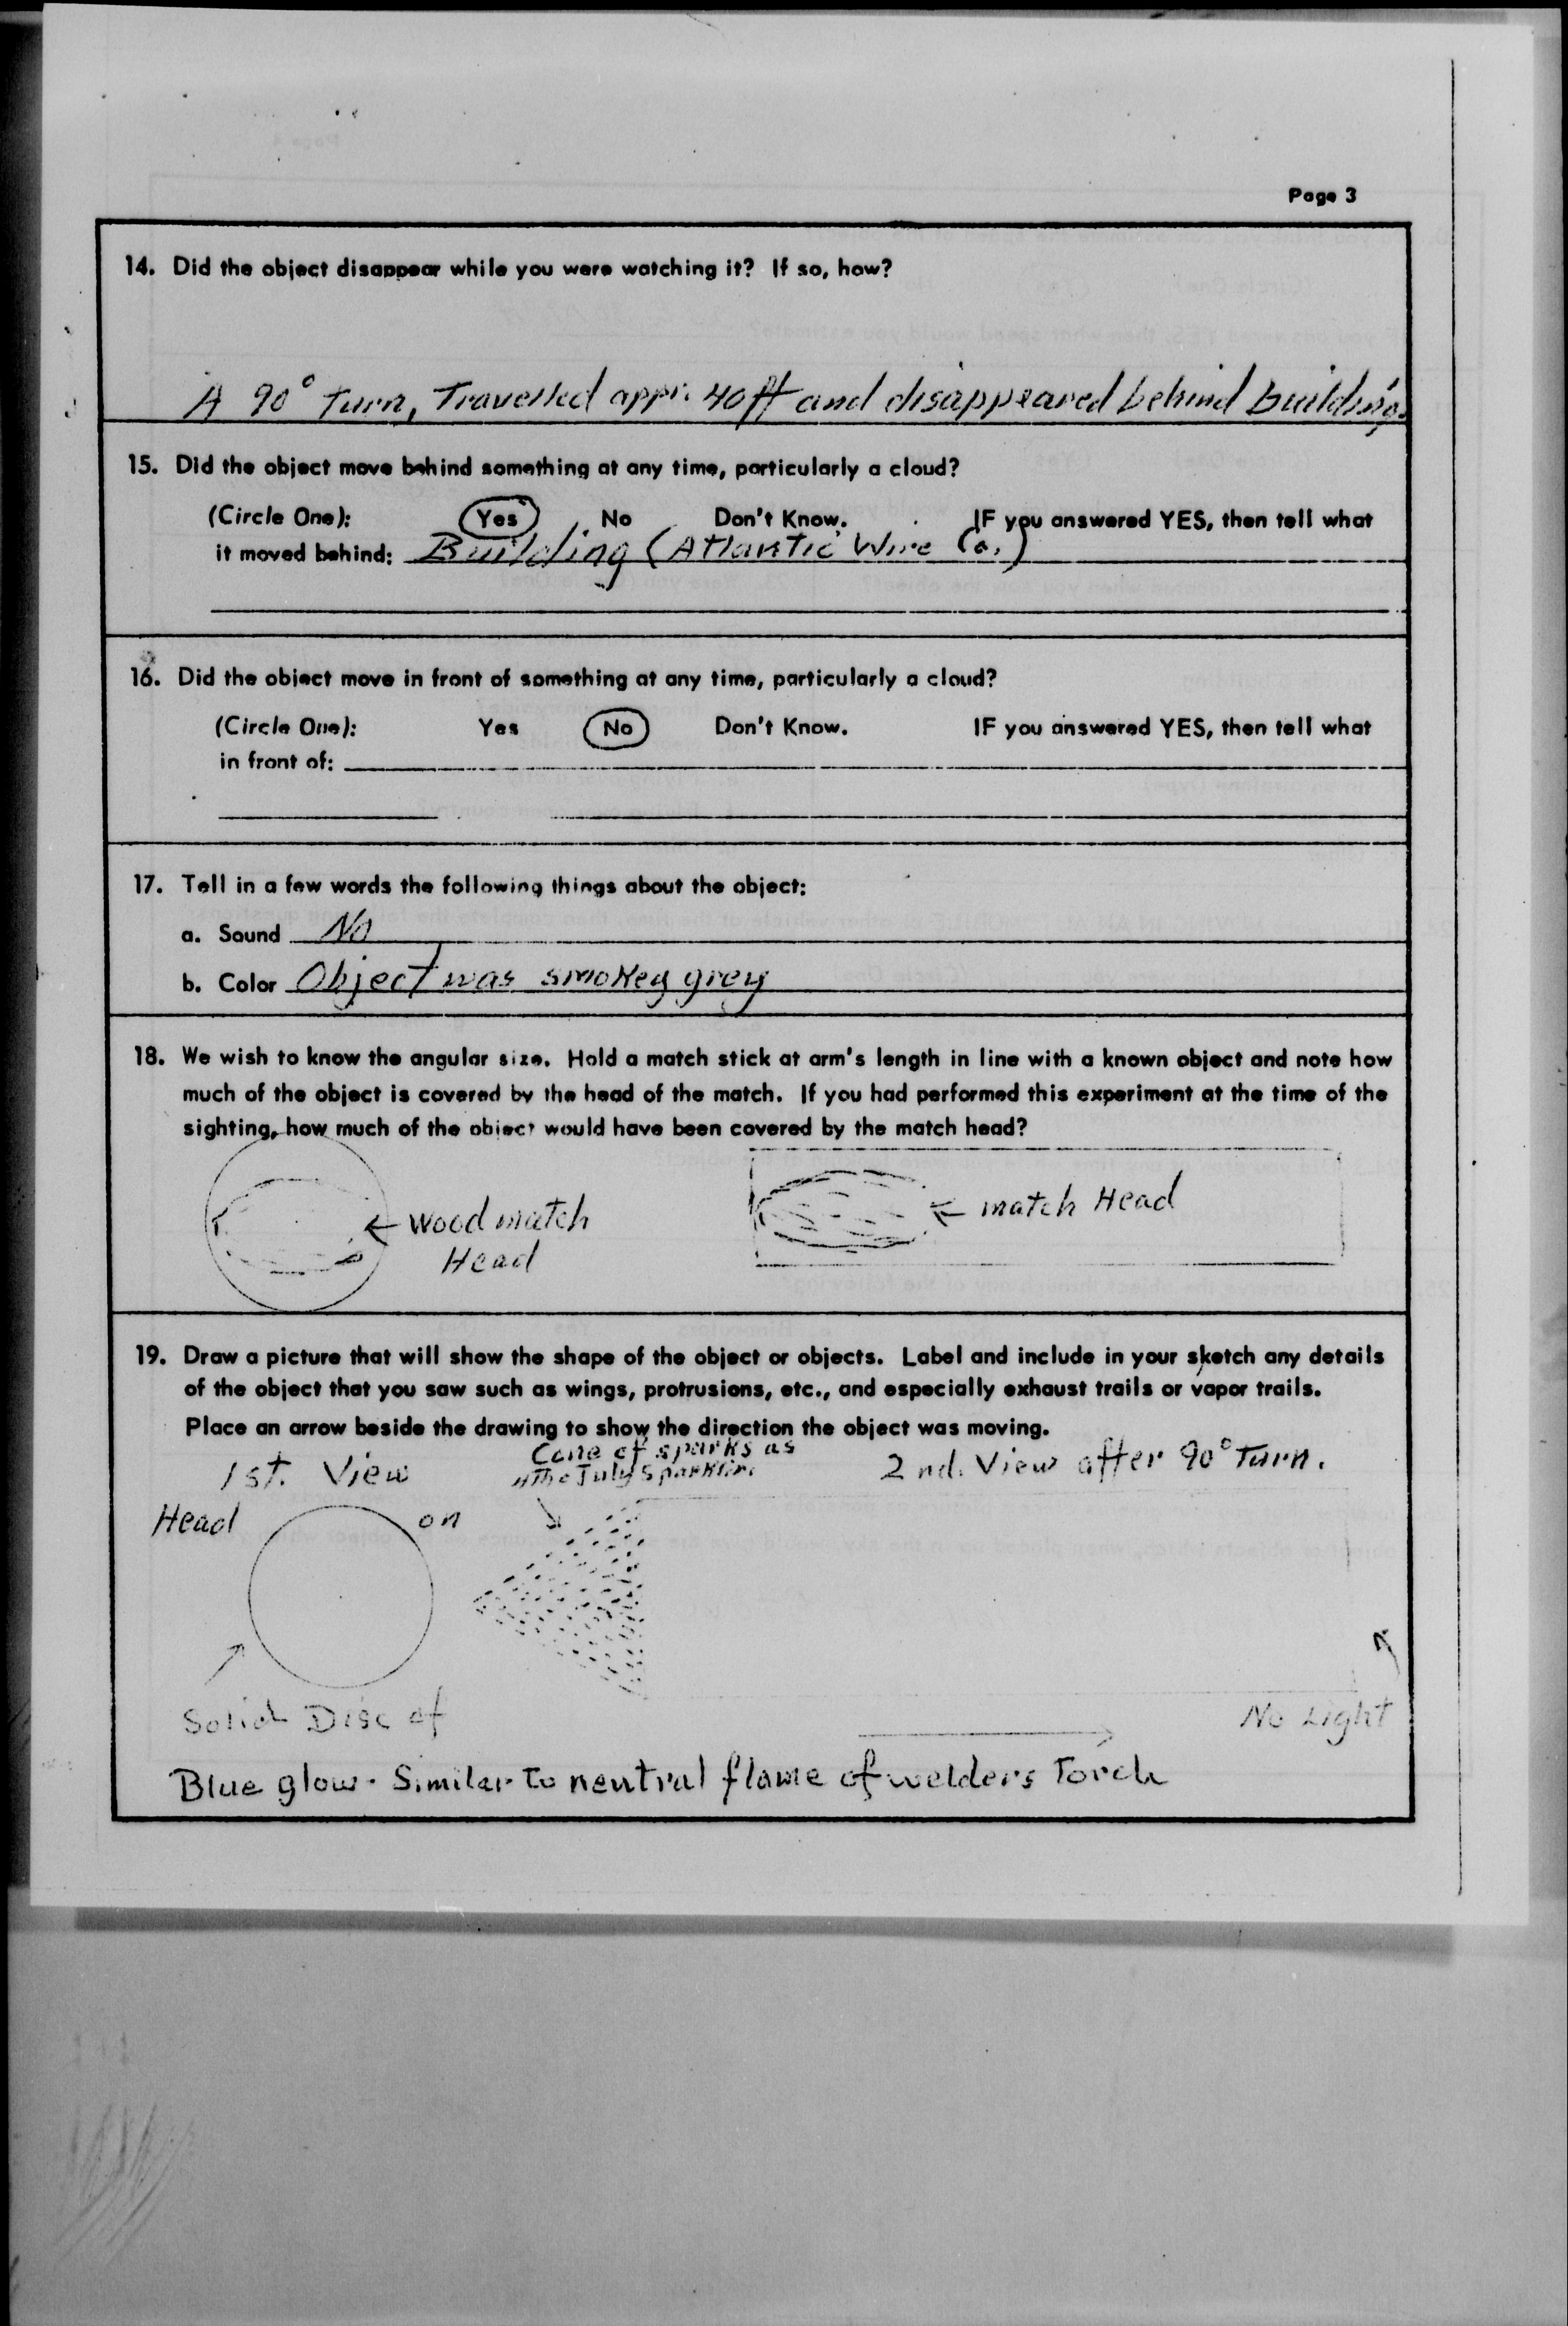 Page 3
14. Did the object disappear while you were watching it? If so, how?
A 90° Turn, Travelled appr. 40 ft and disappeared behind building.
15. Did the object move behind something at any time, particularly a cloud?
(Circle One): Yes No Don't Know. IF you answered YES, then tell what
it moved behind: Building (Atlantic Wire Co.)
16. Did the object move in front of something at any time, particularly a cloud?
(Circle One): Yes No Don't Know. IF you answered YES, then tell what
in front of:
17. Tell in a few words the following things about the object:
a. Sound No
b. Color Object was smokey grey
18. We wish to know the angular size. Hold a match stick at arm's length in line with a known object and note how
much of the object is covered by the head of the match. If you had performed this experiment at the time of the
sighting, how much of the object would have been covered by the match head?
← Wood match
Head
← match Head
19. Draw a picture that will show the shape of the object or objects. Label and include in your sketch any details
of the object that you saw such as wings, protrusions, etc., and especially exhaust trails or vapor trails.
Place an arrow beside the drawing to show the direction the object was moving.
1st. View
Cone of sparks as
July Sparkler.
2nd. View after 90° Turn.
Head on
Solid Disc of
No Light
Blue glow. Similar to neutral flame of welders Torch